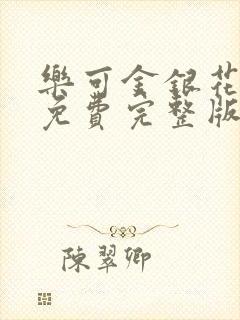 樂可金銀花
免費完整版
陳翠卿